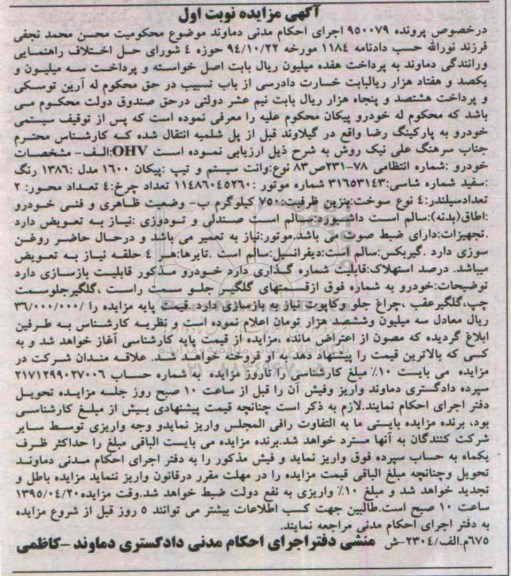 آگهی مزایده نوبت اول
درخصوص پرونده ۹۵۰۰۷۹ اجرای احکام مدنی دماوند موضوع محکومیت محسن محمد نجفی
فرزند نورالله حسب دادنامه ۱۱۸۴ مورخه ۹۴/۱۰/۲۲ حوزه ۴ شورای حل اختلاف راهنمایی
ورانندگی دماوند به پرداخت هفده میلیون ریال بابت اصل خواسته و پرداخت سه میلیون و
یکصد و هفتاد هزار ریالبابت خسارت دادرسی از باب تسبیب در حق محکوم له آرین توسکی
و پرداخت هشتصد و پنجاه هزار ریال بابت نیم عشر دولتی درحق صندوق دولت محکوم می
باشد که محکوم له خودرو پیکان محکوم علیه را معرفی نموده است که پس از توقیف سیستمی
خودرو به پارکینگ رضا واقع در گیلاوند قبل از پل شلمبه انتقال شده که کارشناس محترم
جناب سرهنگ علی نیک روش به شرح ذیل ارزیابی نموده است OHV:الف-مشخصات
خودرو :شماره انتظامی ۷۸-۲۳۱ص۸۳ نوع:وانت سیستم و تیپ :پیکان ۱۶۰۰ مدل :۱۳۸۶ رنگ
:سفید شماره شاسی:۳۱۶۵۳۱۴۳ شماره موتور :۱۱۴۸۶۰۴۵۲۶۰ تعداد چرخ:۴ تعداد محور: ۲
تعدادسیلندر:۴ نوع سوخت:بنزین ظرفیت:۷۵۰ کیلوگرم ب- وضعیت ظاهری و فنی خودرو
:اطاق(بدنه):سالم است داشبورد:سالم است صندلی و تودوزی :نیاز به تعویض دارد
.تجهیزات:دارای ضبط صوت می باشد.موتور:نیاز به تعمیر می باشد و درحال حاضر روغن
سوزی دارد .گیربکس:سالم است:دیفرانسیل:سالم است .تایرها:هر ۴ حلقه نیاز به تعویض
میباشد. درصد استهلاک:قابلیت شماره گذاری دارد خودرو مذکور قابلیت بازسازی دارد
توضیحات:خودرو به شماره فوق ازقسمتهای گلگیر جلو سمت راست ،گلگیرجلوسمت
چپ،گلگیرعقب ،چراغ جلو وکاپوت نیاز به بازسازی دارد. قیمت پایه مزایده را ۳۶/۰۰۰/۰۰۰/
ریال معادل سه میلیون وششصد هزار تومان اعلام نموده است و نظریه کارشناس به طرفین
ابلاغ گردیده که مصون از اعتراض مانده .مزایده از قیمت پایه کارشناسی آغاز خواهد شد و به
کسی که بالاترین قیمت را پیشنهاد دهد به او فروخته خواهد شد. علاقه مندان شرکت در
مزایده می بایست ۱۰٪ مبلغ کارشناسی را تاروز مزایده به شماره حساب ۲۱۷۱۲۹۹۰۲۷۰۰۶
سپرده دادگستری دماوند واریز وفیش آن را قبل از ساعت ۱۰ صبح روز جلسه مزایده تحویل
دفتر اجرای احکام نمایند.لازم به ذکر است چنانچه قیمت پیشنهادی بیش از مبلغ کارشناسی
بود، برنده مزایده بایستی ما به التفاوت رافی المجلس واریز نمایدو وجه واریزی توسط سایر
شرکت کنندگان به آنها مسترد خواهد شد.برنده مزایده می بایست الباقی مبلغ را حداکثر ظرف
یکماه به حساب سپرده فوق واریز نماید و فیش مذکور را به دفتر اجرای احکام مدنی دماوند
تحویل وچنانچه مبلغ الباقی قیمت مزایده را در مهلت مقرر درقانون واریز ننماید مزایده باطل و
تجدید خواهد شد و مبلغ ۱۰٪ واریزی به نفع دولت ضبط خواهد شد.وقت مزایده۱۳۹۵/۰۴/۲۰
ساعت ۱۰ صبح است.طالبین جهت کسب اطلاعات بیشتر می توانند ۵ روز قبل از شروع مزایده
به دفتر اجرای احکام مدنی مراجعه نمایند.
۶۷۵م.الف/۲۳۰۴-ش منشی دفتراجرای احکام مدنی دادگستری دماوند -کاظمی